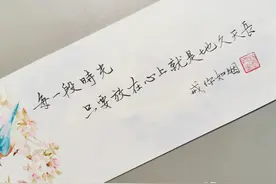 每一段時光
只要放在心上就是地久天長
戒你如烟